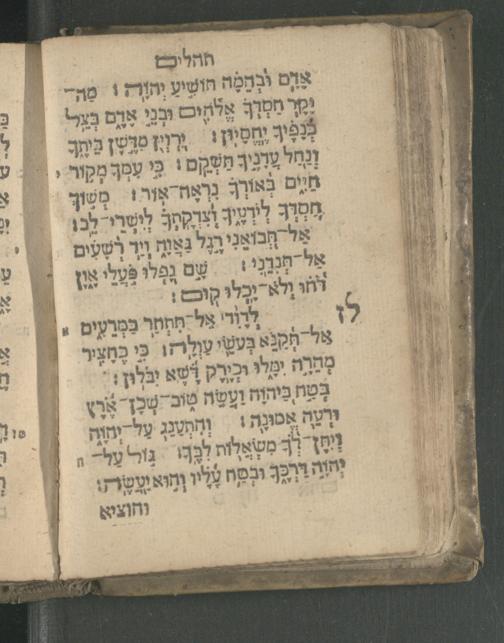 תהלים
אָדָם וּבְהֵמָה תוֹשִׁיעַ יְהוָה׃ מַה־
יָּקָר חַסְדְּךָ אֱלֹהִים וּבְנֵי אָדָם בְּצֵל
כְּנָפֶיךָ יֶחֱסָיוּן׃ יִרְוְיֻן מִדֶּשֶׁן בֵּיתֶךָ
וְנַחַל עֲדָנֶיךָ תַשְׁקֵם׃ כִּי עִמְּךָ מְקוֹר
חַיִּים בְּאוֹרְךָ נִרְאֶה־אוֹר׃ מְשׁוֹךְ
חַסְדְּךָ לְיֹדְעֶיךָ וְצִדְקָתְךָ לְיִשְׁרֵי־לֵב׃
אַל־תְּבוֹאֵנִי רֶגֶל גַּאֲוָה וְיַד רְשָׁעִים
אַל־תְּנִדֵנִי׃ שָׁם נָפְלוּ פֹּעֲלֵי אָוֶן
דֹּחוּ וְלֹא־יָכְלוּ קוּם׃
לז
לְדָוִד אַל־תִּתְחַר בַּמְּרֵעִים א
אַל־תְּקַנֵּא בְּעֹשֵׂי עַוְלָה׃ כִּי כֶחָצִיר
מְהֵרָה יִמָּלוּ וּכְיֶרֶק דֶּשֶׁא יִבּוֹלוּן׃
בְּטַח בַּיהוָה וַעֲשֵׂה טוֹב שְׁכָן־אֶרֶץ
וּרְעֵה אֱמוּנָה׃ וְהִתְעַנַּג עַל־יְהוָה
וְיִתֶּן־לְךָ מִשְׁאֲלוֹת לִבֶּךָ׃ גּוֹל עַל־
יְהוָה דַּרְכֶּךָ וּבְטַח עָלָיו וְהוּא יַעֲשֶׂה׃
והוציא